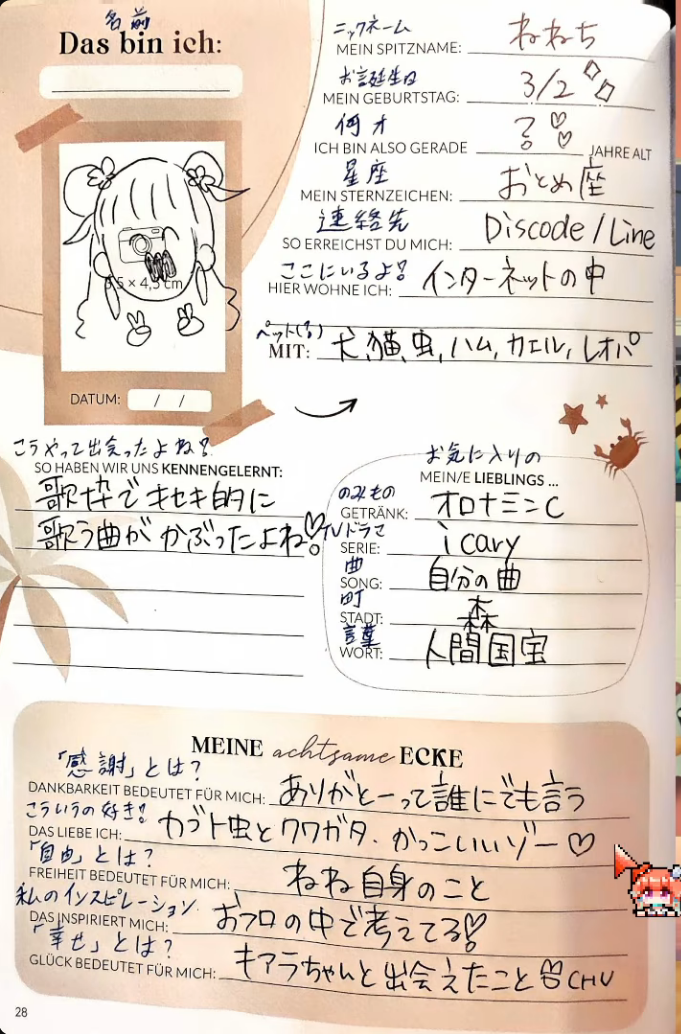 名前
Das bin ich:
5 × 4,5 cm
DATUM: / /
ニックネーム
MEIN SPITZNAME: ねねち
お誕生日
MEIN GEBURTSTAG: 3/2
何才
ICH BIN ALSO GERADE ? JAHRE ALT
星座
MEIN STERNZEICHEN: おとめ座
連絡先
SO ERREICHST DU MICH: Discode / Line
ここにいるよ!
HIER WOHNE ICH: インターネットの中
MIT: 犬,猫,虫,ハム,カエル,レオパ
こうやって出会ったよね?
SO HABEN WIR UNS KENNENGELERNT:
歌枠でキセキ的に
歌う曲がかぶったよね♡!
お気に入りの
MEIN/E LIEBLINGS ...
のみもの
GETRÄNK: オロナミンC
TVドラマ
SERIE: icary
曲
SONG: 自分の曲
町
STADT: 森
言葉
WORT: 人間国宝
MEINE achtsame ECKE
「感謝」とは?
DANKBARKEIT BEDEUTET FÜR MICH: ありがとーって誰にでも言う
こういうの好き!
DAS LIEBE ICH: カブト虫とクワガタ.かっこいいゾー♡
「自由」とは?
FREIHEIT BEDEUTET FÜR MICH: ねね自身のこと
私のインスピレーション
DAS INSPIRIERT MICH: おフロの中で考えてる♡!
「幸せ」とは?
GLÜCK BEDEUTET FÜR MICH: キアラちゃんと出会えたこと CHU
28